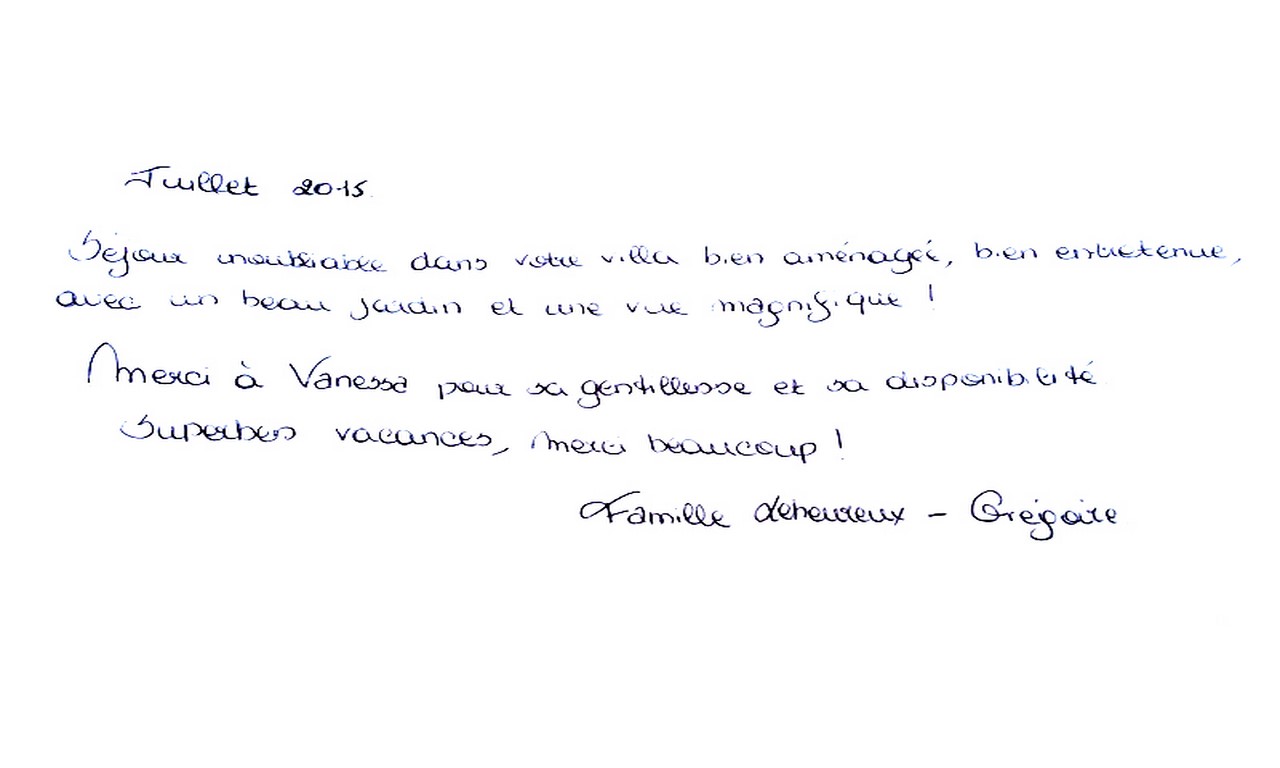 Juillet 2015
Séjour inoubliable dans votre villa bien aménagée, bien entretenue,
avec un beau jardin et une vue magnifique !
Merci à Vanessa pour sa gentillesse et sa disponibilité
Superbes vacances, merci beaucoup !
Famille Leheureux - Grégoire